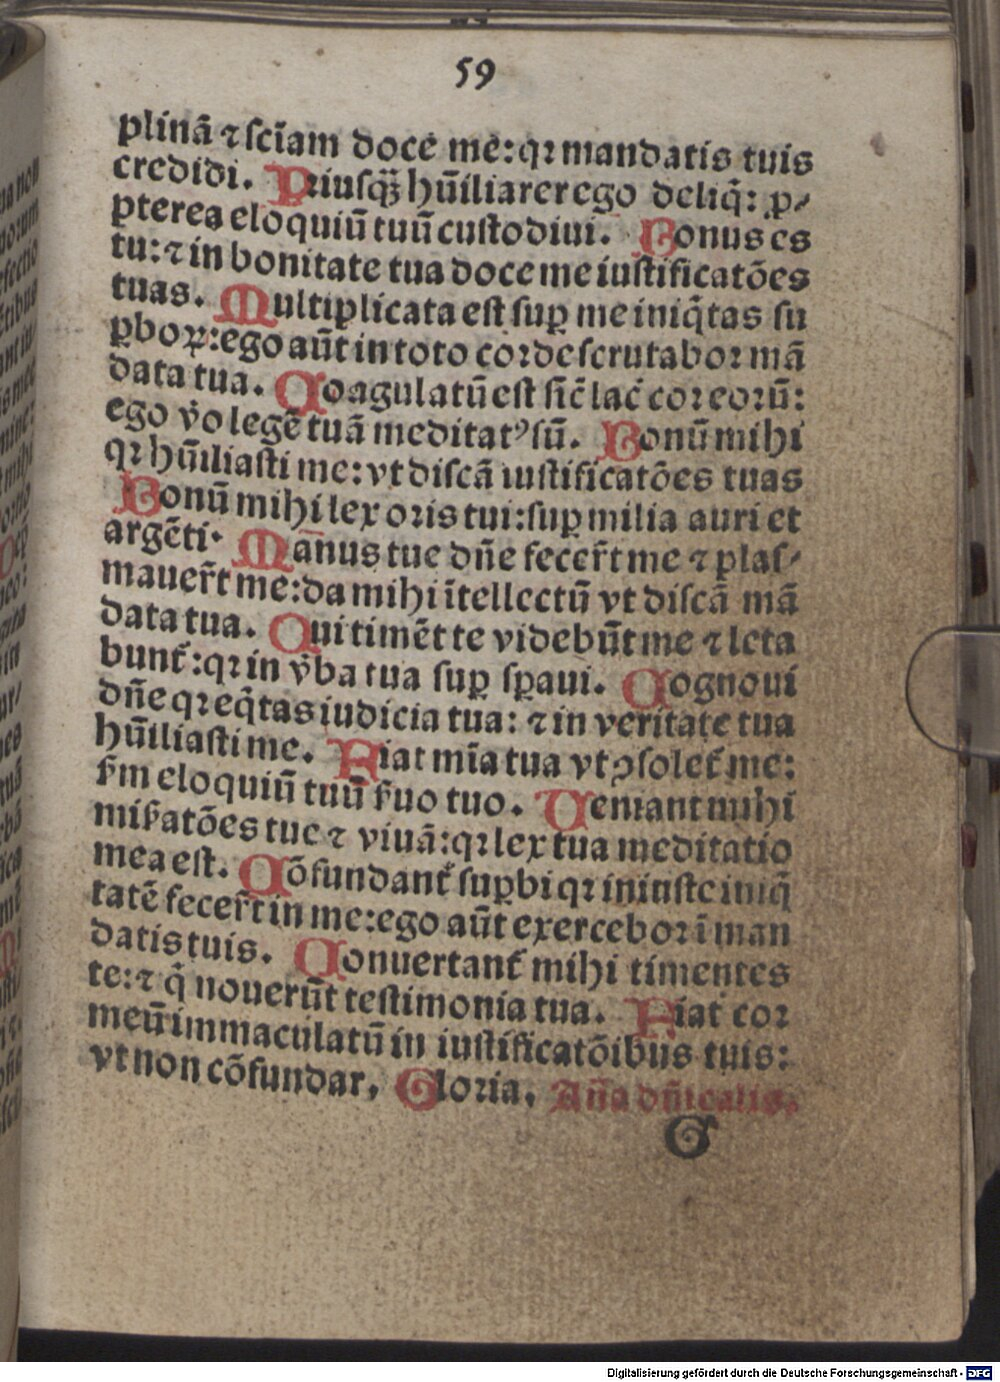 59
plinā ⁊ ſciam doce me: qꝛ mandatis tuis
credidi. Priuſqꝫ hūiliarer ego deliq̄: ꝓ⸗
pterea eloquiū tuū cuſtodiui. Bonus es
tu: ⁊ in bonitate tua doce me iuſtificatōes
tuas. Multiplicata eſt ſuꝑ me iniq̄tas ſu
ꝑboꝝ: ego aūt in toto coꝛde ſcrutaboꝛ mā
data tua. Coagulatū eſt ſic̄ lac̄ coꝛ eoꝛū:
ego v̄o legē tuā meditatꝰ ſū. Bonū mihi
qꝛ hūiliaſti me: vt diſcā iuſtificatōes tuas
Bonū mihi lex oꝛis tui: ſuꝑ milia auri et
argēti. Manus tue dn̄e fecer̄t me ⁊ plaſ⸗
mauer̄t me: da mihi ītellectū vt diſcā mā
data tua. Qui timēt te videbūt me ⁊ leta
bunt᷑: qꝛ in v̄ba tua ſuꝑ ſꝑaui. Cognoui
dn̄e qꝛ eq̄tas iudicia tua: ⁊ in veritate tua
hūiliaſti me. Fiat mīa tua vt ꝯſolet᷑ me:
ẜm eloquiū tuū ẜuo tuo. Ueniant mihi
miẜatōes tue ⁊ viuā: qꝛ lex tua meditatio
mea eſt. Cōfundant᷑ ſuꝑbi qꝛ iniuſte iniq̄
tatē fecer̄t in me: ego aūt exerceboꝛ ī man
datis tuis. Conuertant᷑ mihi timentes
te: ⁊ q̄ nouerūt teſtimonia tua. Fiat coꝛ
meū immaculatū in iuſtificatōibus tuis:
vt non cōfundar. Gloꝛia. Aña dn̄icalis.
G
Digitalisierung gefördert durch die Deutsche Forschungsgemeinschaft - DFG